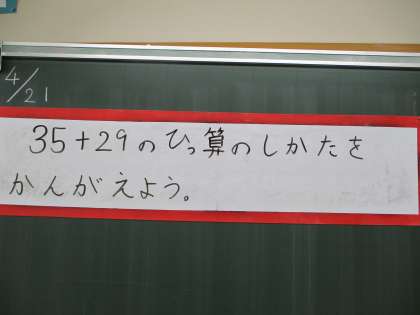 4/21
35+29のひっ算のしかたを
かんがえよう。